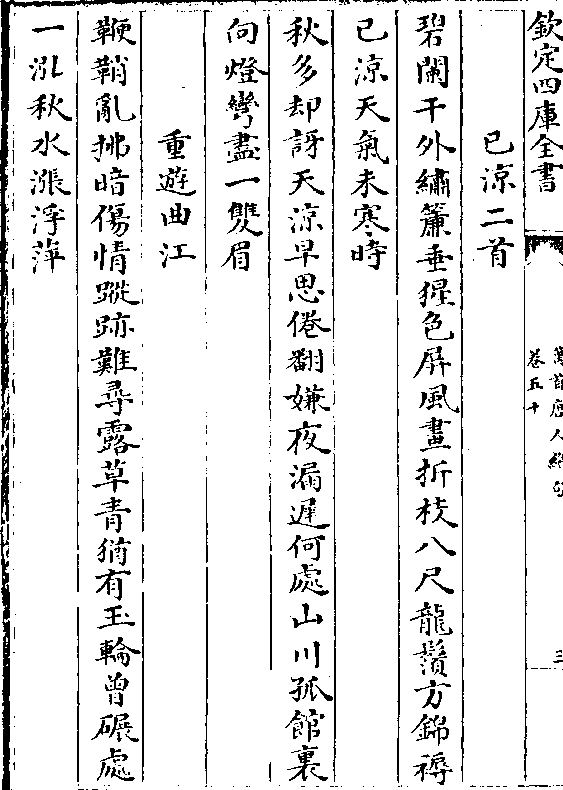 欽定四庫全書
萬首唐人絶句
卷五十
三
已涼二首
碧闌干外繡簾垂猩色屏風畫折枝八尺龍鬚方錦褥
已涼天氣未寒時
秋多却訝天涼早思倦翻嫌夜漏遲何處山川孤館裏
向燈彎盡一雙眉
重遊曲江
鞭鞘亂拂暗傷情蹤跡難尋露草青猶有玉輪曾碾處
一泓秋水漲浮萍